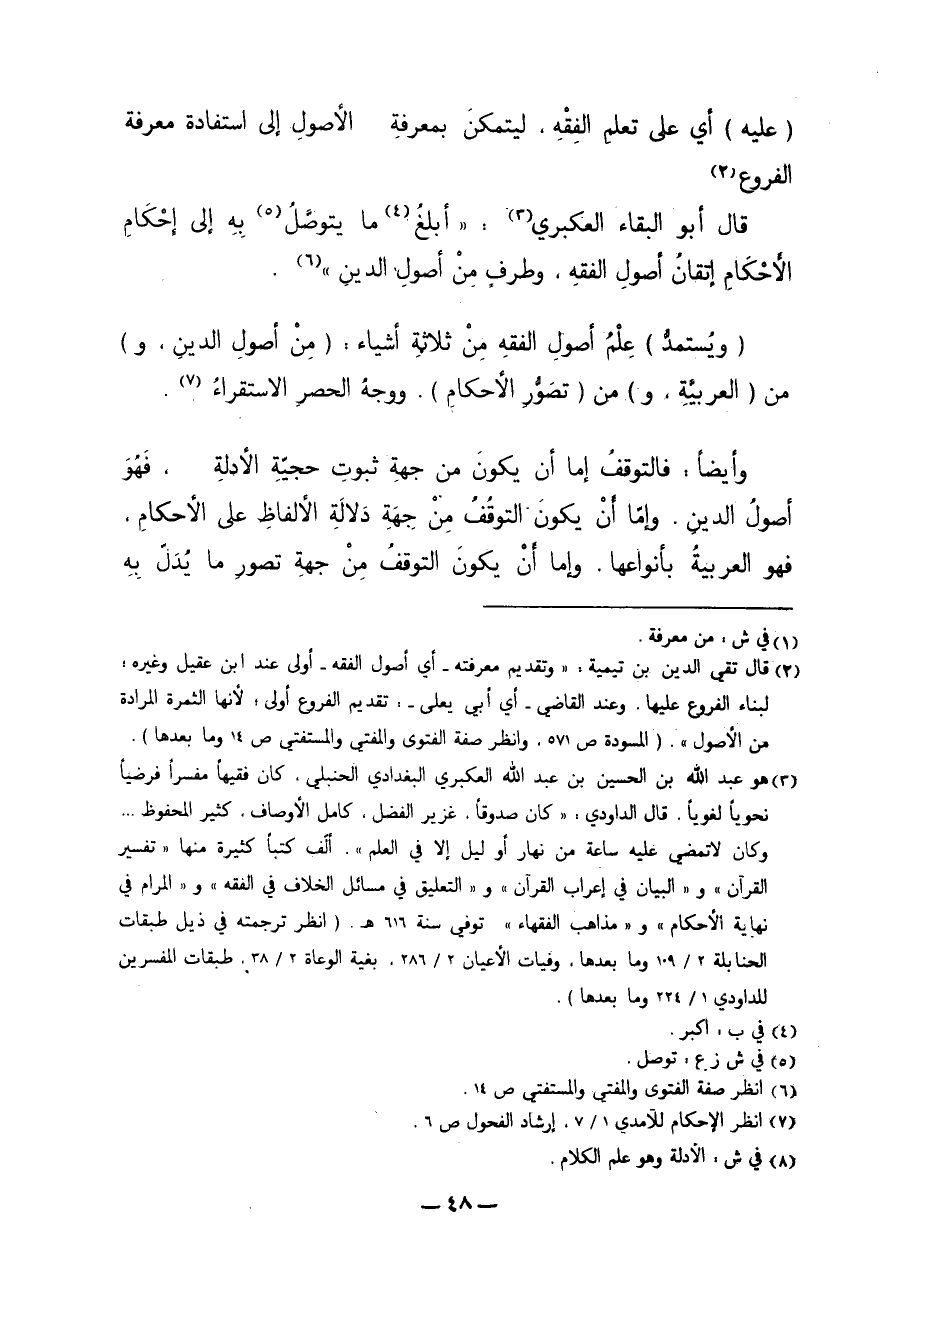 ( عليه ) أي على تعلمِ الفِقْهِ ، ليتمكنَ بمعرفةِ الأصولِ إلى استفادة معرفة
الفروع(٢)
قال أبو البقاء العكبري(٣) : « أبلغُ(٤) ما يتوصَّلُ(٥) بِهِ إلى إحْكَامِ
الأحْكَامِ إتقانُ أصولِ الفقهِ ، وطرفٍ مِنْ أصولِ الدينِ »(٦) .
( ويُستمدُّ ) عِلْمُ أصولِ الفقهِ مِنْ ثلاثةِ أشياء : ( مِنْ أصولِ الدينِ ، و )
من ( العربيَّةِ ، و ) من ( تصَوُّرِ الأحكامِ ) . ووجهُ الحصرِ الاستقراءُ (٧) .
وأيضاً : فالتوقفُ إما أن يكونَ من جهةِ ثبوتِ حجيّةِ الأدلةِ ، فَهُوَ
أصولُ الدينِ . وإمّا أنْ يكونَ التوقُفُ مِنْ جِهَةِ دَلالَةِ الألفاظِ على الأحكامِ ،
فهو العربيةُ بأنواعها . وإما أنْ يكونَ التوقفُ مِنْ جهةِ تصورِ ما يُدَلّ بِهِ
(١) في ش : من معرفة .
(٢) قال تقي الدين بن تيمية : « وتقديم معرفته ـ أي أصول الفقه ـ أولى عند ابن عقيل وغيره ؛
لبناء الفروع عليها . وعند القاضي ـ أي أبي يعلى ـ : تقديم الفروع أولى ؛ لأنها الثمرة المرادة
من الأصول » . ( المسودة ص ٥٧١ ، وانظر صفة الفتوى والمفتي والمستفتي ص ١٤ وما بعدها ) .
(٣) هو عبد الله بن الحسين بن عبد الله العكبري البغدادي الحنبلي ، كان فقيهاً مفسراً فرضياً
نحوياً لغوياً . قال الداودي : « كان صدوقاً ، غزير الفضل ، كامل الأوصاف ، كثير المحفوظ ...
وكان لاتمضي عليه ساعة من نهار أو ليل إلا في العلم » . ألّف كتباً كثيرة منها « تفسير
القرآن » و « البيان في إعراب القرآن » و « التعليق في مسائل الخلاف في الفقه » و « المرام في
نهاية الأحكام » و « مذاهب الفقهاء » توفي سنة ٦١٦ هـ . ( انظر ترجمته في ذيل طبقات
الحنابلة ٢ / ١٠٩ وما بعدها ، وفيات الأعيان ٢ / ٢٨٦ ، بغية الوعاة ٢ / ٣٨ ، طبقات المفسرين
للداودي ١ / ٢٢٤ وما بعدها ) .
(٤) في ب : اكبر .
(٥) في ش ز ع : توصل .
(٦) انظر صفة الفتوى والمفتي والمستفتي ص ١٤ .
(٧) انظر الإحكام للآمدي ١ / ٧ ، إرشاد الفحول ص ٦ .
(٨) في ش : الأدلة وهو علم الكلام .
— ٤٨ —